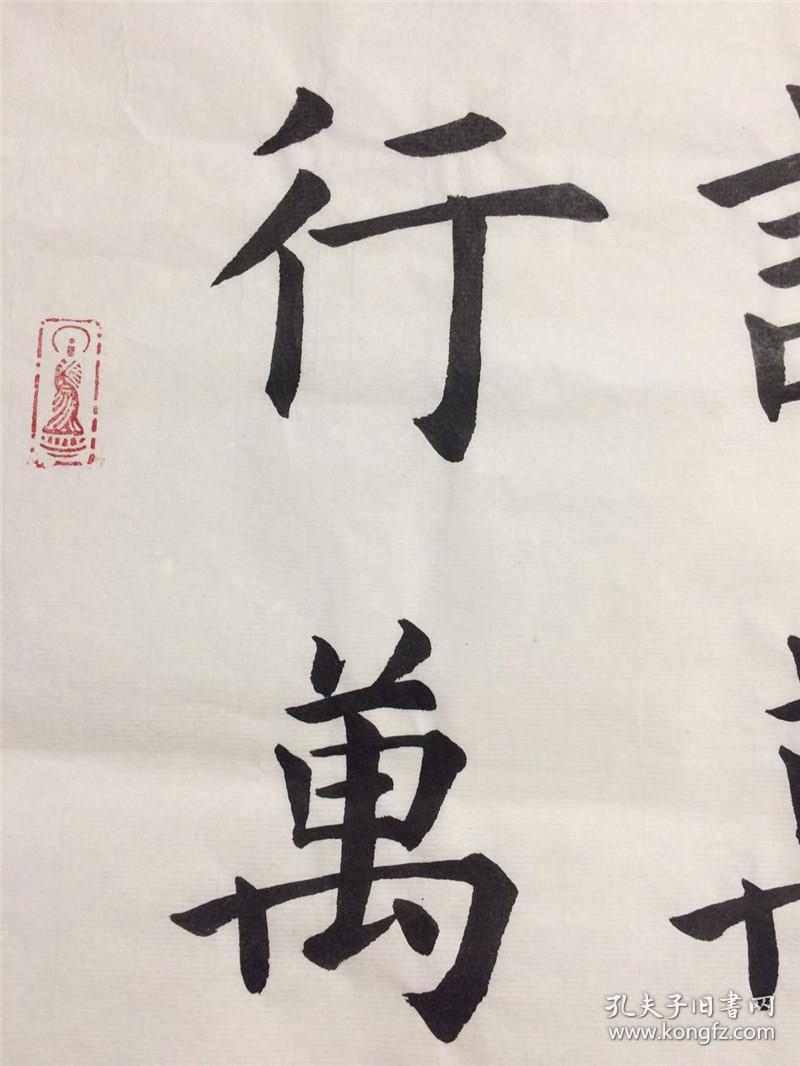 行萬
孔夫子旧書网
www.kongfz.com